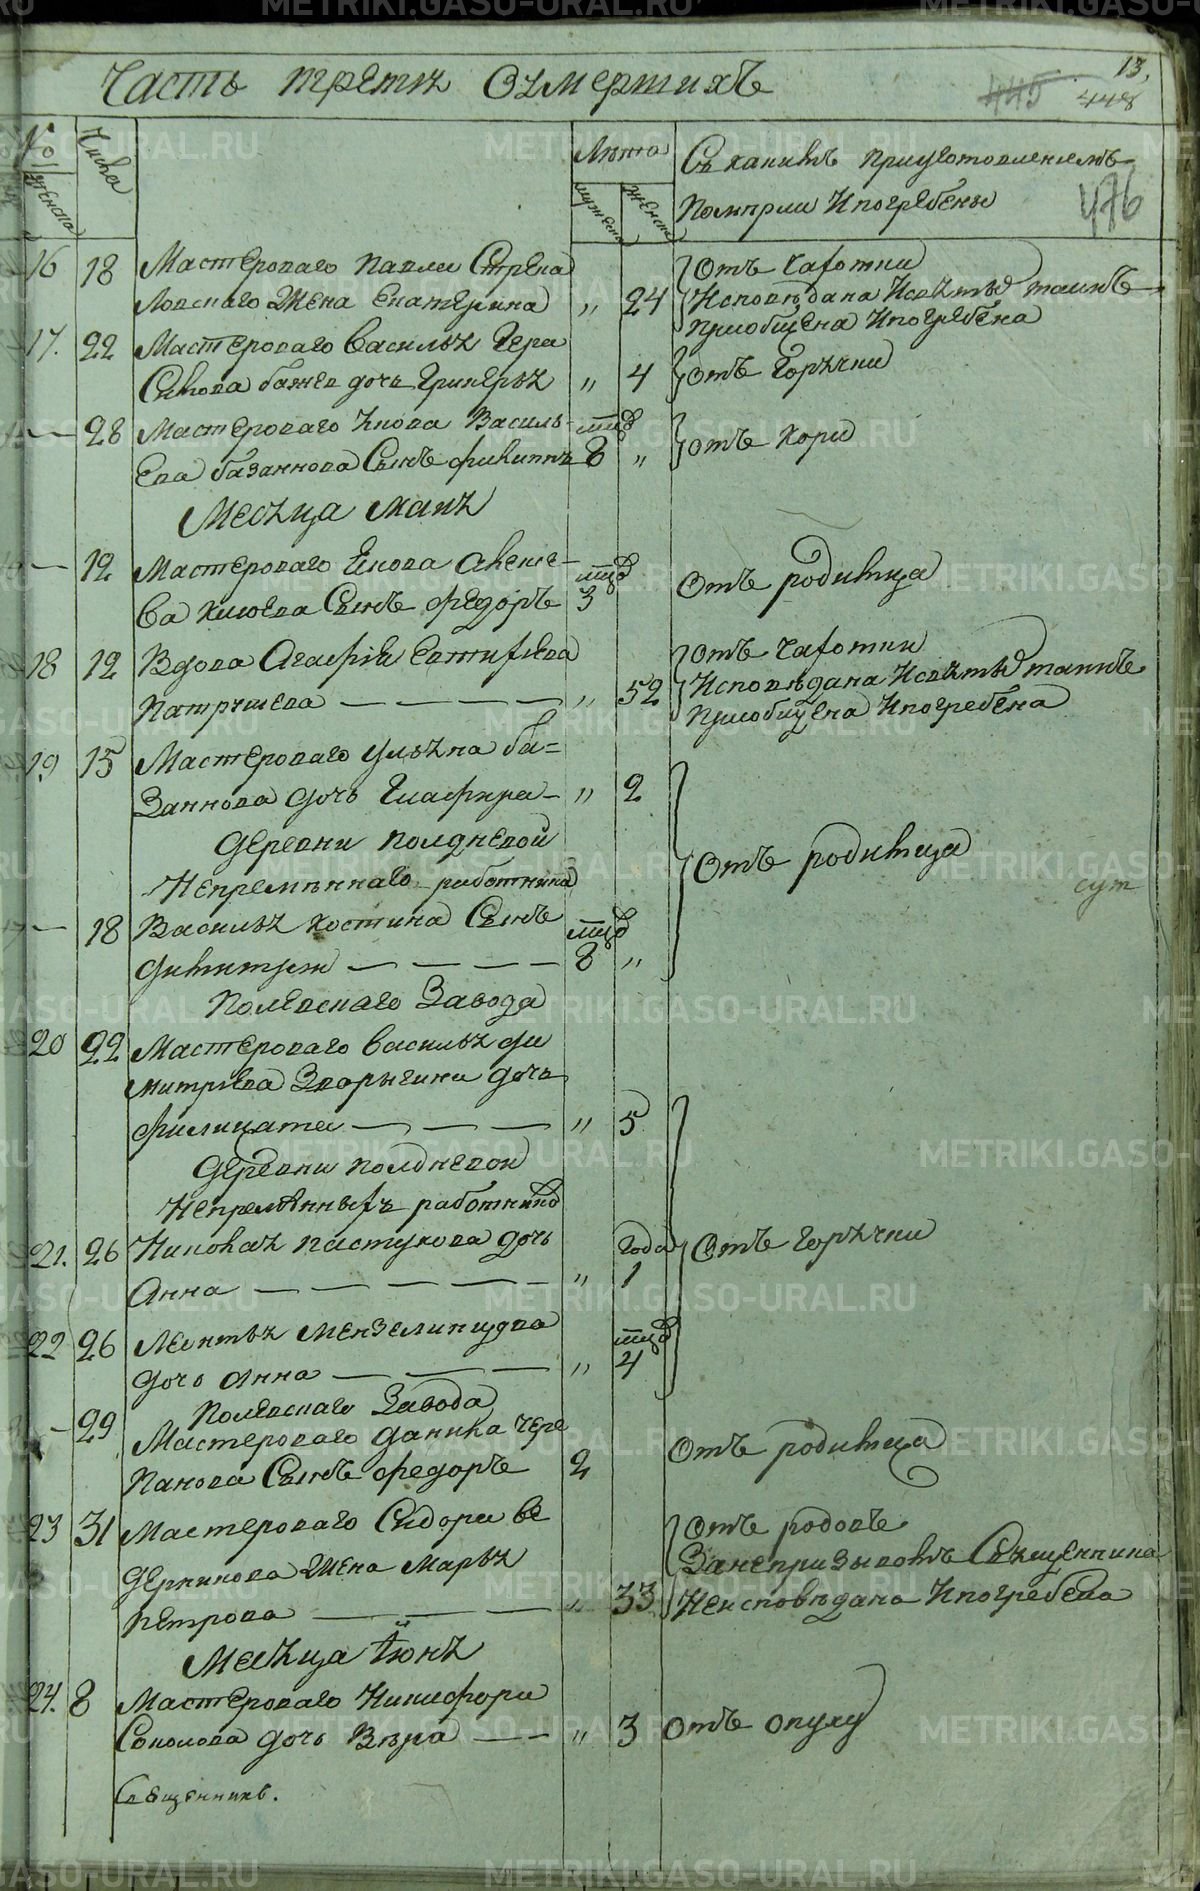 Часть третия Оумершихъ
13.
445 448
№
женска
Числа
Лѣта
мужеска
женска
Съ какимъ приуготовлениемъ
Померли И погребены
476
16 18 Мастероваго Павла Стрека
ловскаго Жена Екатерина „ 24
Отъ Чахотки
Исповѣдана И святыхъ таинъ
приобщена И погребена
17. 22 Мастероваго Василья Гера
Симова дочь „ 4
Отъ Горячки
— 28 Мастероваго Якова Василь-
ева базаннова Сынъ Филиппъ 8 „
Отъ Кори
Месяца Маия
— 12 Мастероваго Якова Алексе-
ва Клюева Сынъ Федоръ 3
Отъ родимца
18 12 Вдова Агафия Евтифиева
Патрушева — — — — „ 52
Отъ Чахотки
Исповѣдана И святыхъ таинъ
приобщена И погребена
19 15 Мастероваго Ульяна ба=
заннова дочь Глафира — „ 2
Деревни полдневой
Непремѣннаго работника
— 18 Василья Костина Сынъ
Димитрей — — — — 8 „
Отъ родимца
сут
Полевскаго Завода
20 22 Мастероваго Василья Ди
митриева Зворыгина дочь
Филицата — — — „ 5
Деревни полдневой
Непремѣнныхъ работников
21. 26 Николая пастухова дочь года
Анна — — — — — „ 1
Отъ Горячки
22 26 Леонтья Мензелинцова
дочь Анна — — — „ 4
Полевскаго Завода
— 29 Мастероваго Данила Чере
панова Сынъ Федоръ 2
Отъ родимца
23 31 Мастероваго Сидора Ве
дерникова Жена Марья
Петрова — — — „ 33
Отъ родовъ
За непризывомъ Священника
Неисповѣдана И погребена
Месяца Іюня
24. 8 Мастероваго Никифора
Соколова дочь Вѣра — — „ 3
Отъ опуху
Священникъ.
METRIKI.GASO-URAL.RU